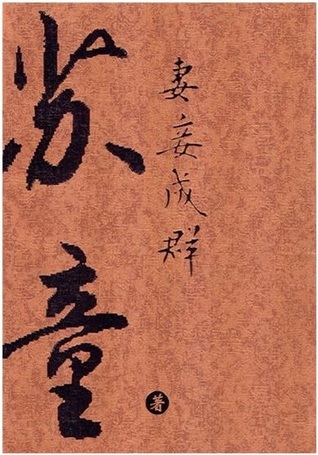 妻妾成群
苏童
著